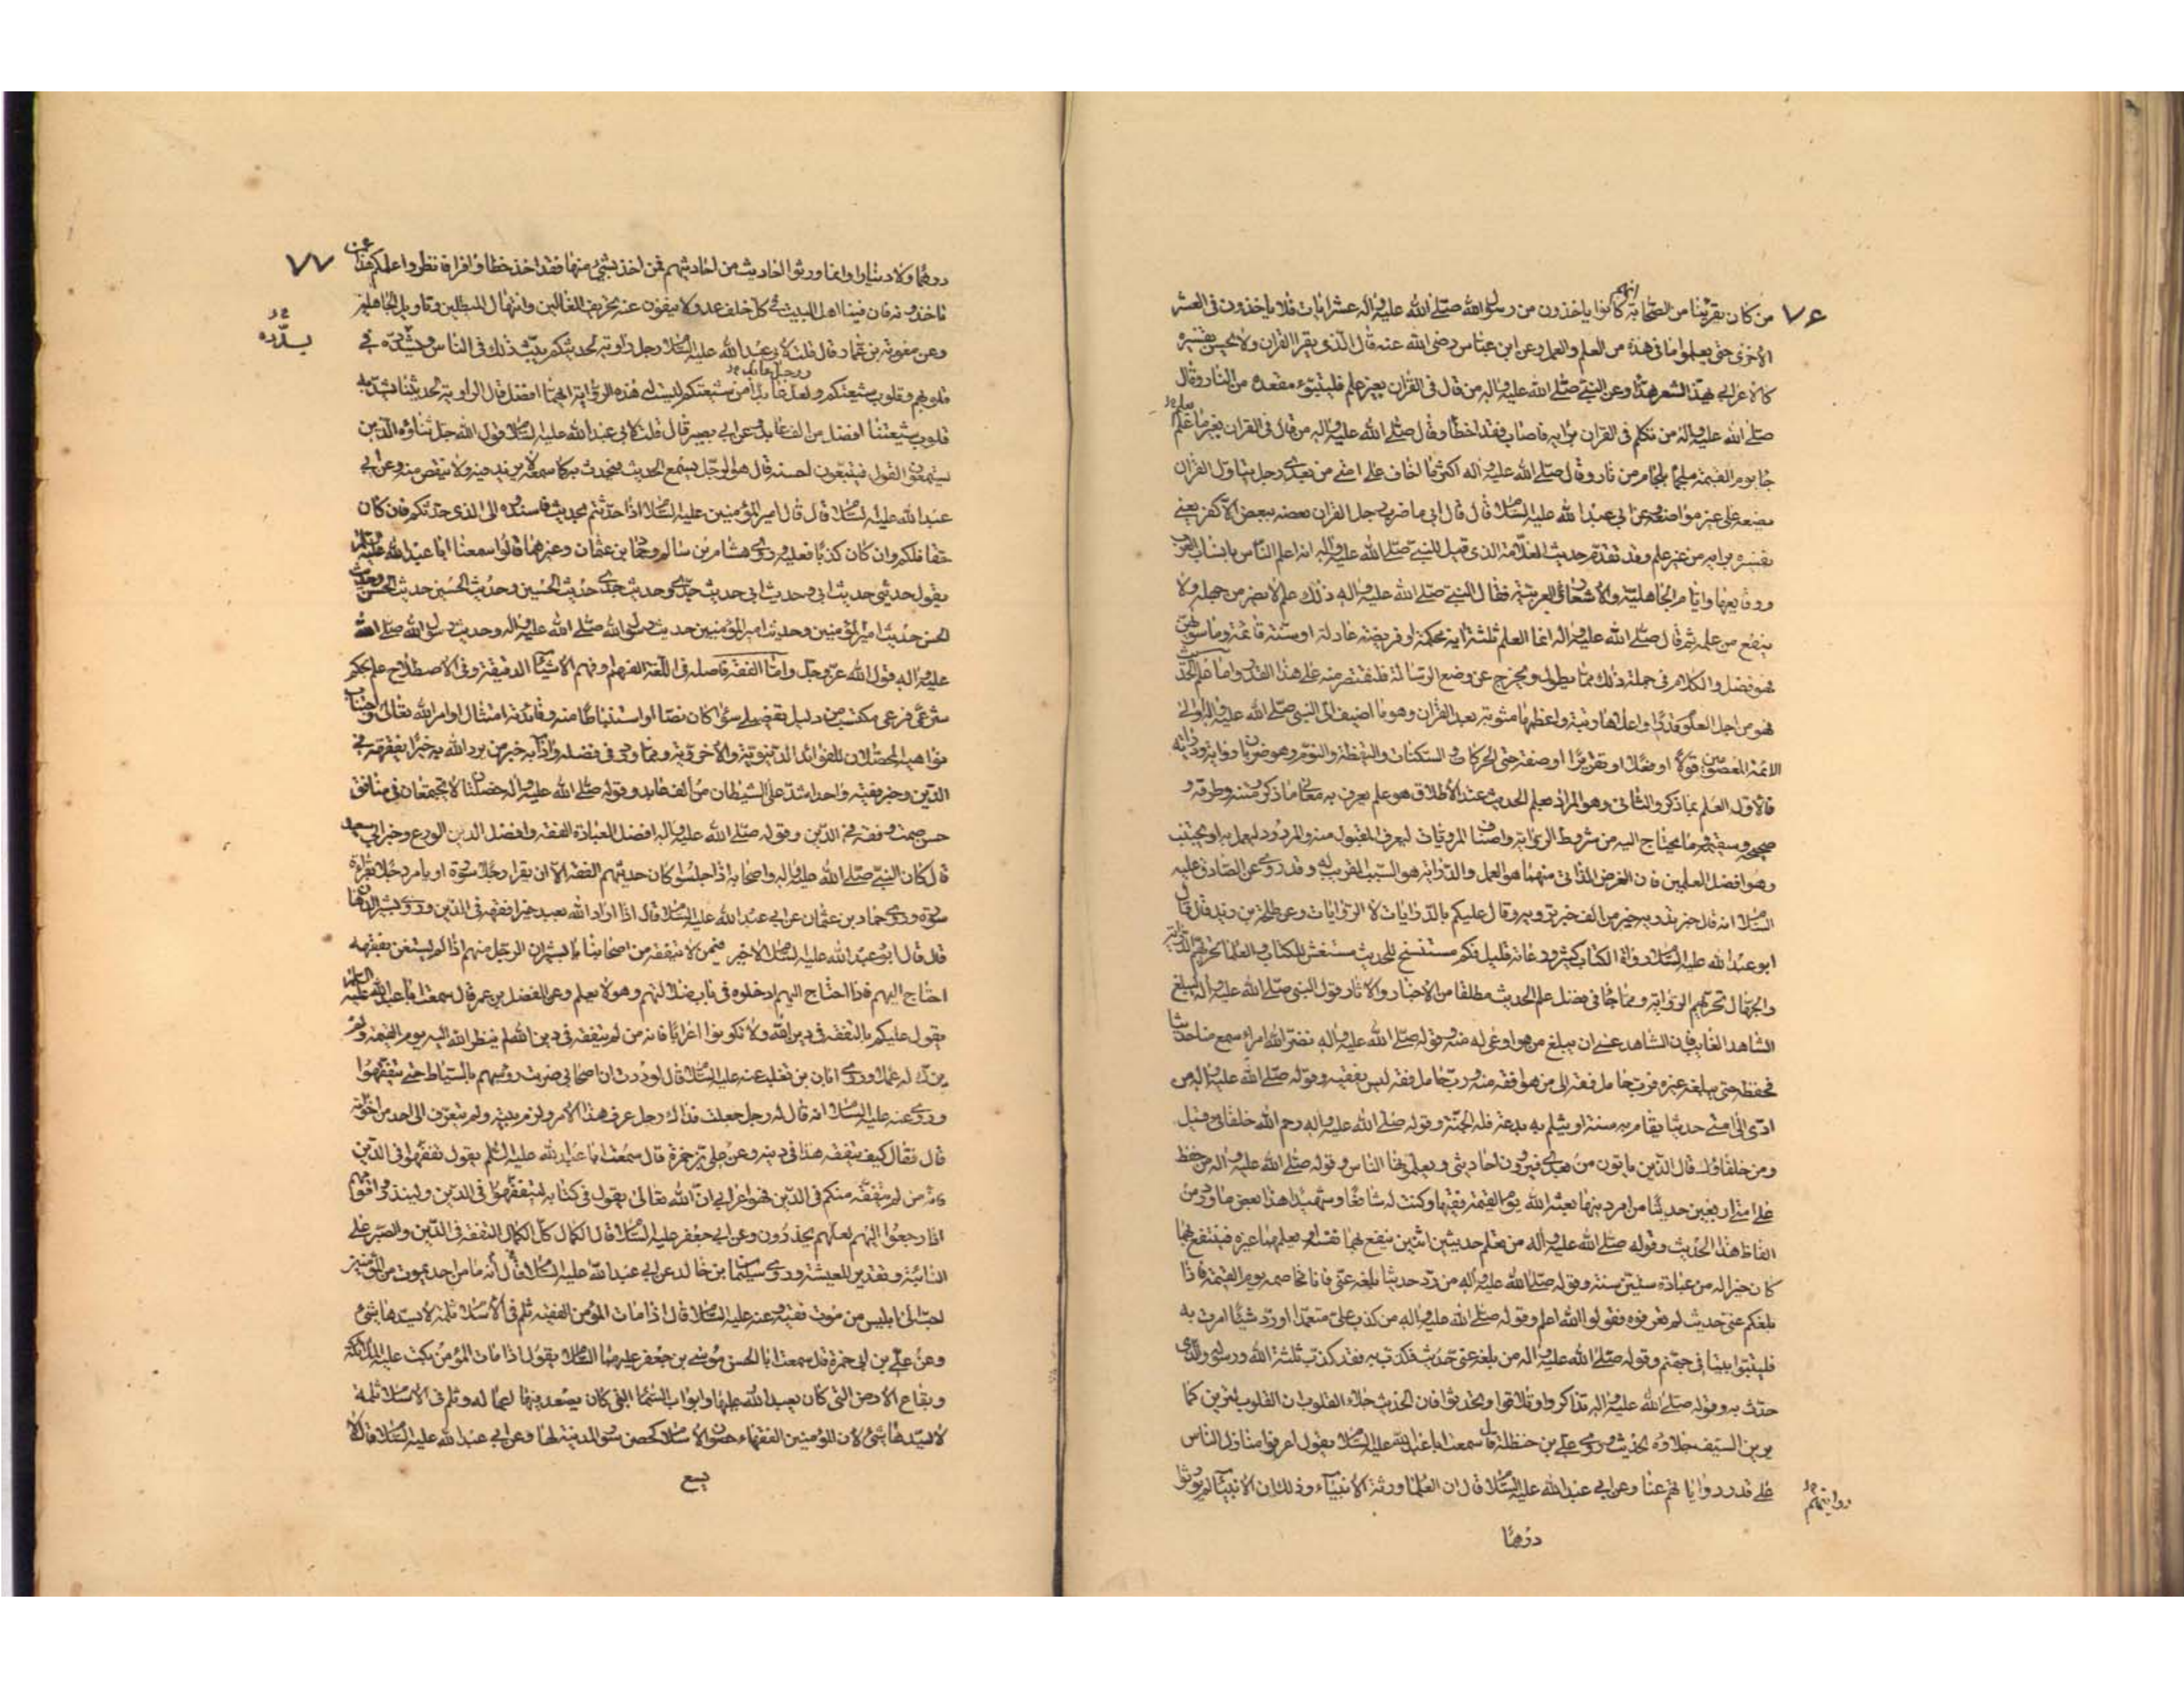 ٧۶
من كان يقرئنا من الصحابة انهم كانوا ياخذون من رسول الله صلى الله عليه واله عشر ايات فلا ياخذون فى العشر
الاخرى حتى يعلموا ما فى هذه من العلم والعمل وعن ابن عباس رضى الله عنه قال الذى يقرا القران ولا يحسن تفسيره
كالاعرابى يهذ الشعر هذا وعن النبى صلى الله عليه واله من قال فى القران بغير علم فليتبوء مقعده من النار وقال
صلى الله عليه واله من تكلم فى القران برايه فاصاب فقد اخطا وقال صلى الله عليه واله من قال فى القران بغير ما علم
يعلم
جا يوم القيمة ملجما بلجام من نار وقال صلى الله عليه واله اكثر ما اخاف على امتى من بعدى رجل يتاول القران
يضعه على غير مواضعه وعن ابى عبد الله عليه السلام قال قال ابى ما ضرب رجل القران بعضه ببعض الا كفر يعنى
تفسيره برايه من غير علم وقد تقدم حديث العلامة الذى قيل للنبى صلى الله عليه واله انه اعلم الناس بانساب العرب
ووقايعها وايام الجاهلية والاشعار العربية فقال النبى صلى الله عليه واله ذلك علم لا يضر من جهله ولا
ينفع من علمه ثم قال صلى الله عليه واله انما العلم ثلثة اية محكمة او فريضة عادلة او سنة قائمة وما سواهن
فهو فضل والكلام فى جملة ذلك مما يطول ويخرج عن وضع الرسالة فلنقتصر منه على هذا القدر واما علم الحديث
فهو من اجل العلوم قدرا واعلاها رتبة واعظمها مثوبة بعد القران وهو ما اضيف الى النبى صلى الله عليه واله او الى
الائمة المعصومين قولا او فعلا او تقريرا او صفة حتى الحركات والسكنات واليقظة والنوم وهو ضربان رواية ودراية
فالاول العلم بما ذكر والثانى وهو المراد بعلم الحديث عند الاطلاق هو علم يعرف به معانى ما ذكر ومتنه وطرقه و
صحيحه وسقيمه وما يحتاج اليه من شروط الرواية واصناف المرويات ليعرف المقبول منه والمردود ليعمل به او يجتنب
وهو افضل العلمين فان الغرض الذاتى منهما هو العمل والدراية هو السبب القريب له وقد روى عن الصادق عليه
السلام انه قال خبر تدريه خير من الف خبر ترويه وقال عليكم بالدرايات لا الروايات وعن طلحة بن زيد قال قال
ابو عبد الله عليه السلام رواة الكتاب كثير ورعاته قليل فكم مستنسخ للحديث مستغش للكتاب والعلما تحزنهم الدراية
والجهال تحزنهم الرواية ومما جا فى فضل علم الحديث مطلقا من الاخبار والاثار قول النبى صلى الله عليه واله ليبلغ
الشاهد الغايب فان الشاهد عسى ان يبلغ من هو اوعى له منه وقوله صلى الله عليه واله نضر الله امرا سمع منا حديثا
فحفظه حتى يبلغه غيره فرب حامل فقه الى من هو افقه منه ورب حامل فقه ليس بفقيه وقوله صلى الله عليه واله من
ادى الى امتى حديثا يقام به سنة او يثلم به بدعة فله الجنة وقوله صلى الله عليه واله رحم الله خلفائى قيل
ومن خلفاؤك قال الذين ياتون من بعدى فيروون احاديثى ويعلمونها الناس وقوله صلى الله عليه واله من حفظ
على امتى اربعين حديثا من امر دينها بعثه الله يوم القيمة فقيها وكنت له شافعا وشهيدا هذا بعض ما ورد من
الفاظ هذا الحديث وقوله صلى الله عليه واله من تعلم حديثين اثنين ينفع بهما نفسه او يعلمهما غيره فينتفع بهما
كان خيرا له من عبادة ستين سنة وقوله صلى الله عليه واله من رد حديثا بلغه عنى فانا مخاصمه يوم القيمة فاذا
بلغكم عنى حديث لم تعرفوه فقولوا الله اعلم وقوله صلى الله عليه واله من كذب على متعمدا او رد شيئا امرت به
فليتبوا بيتا فى جهنم وقوله صلى الله عليه واله من بلغه عنى حديث فكذب به فقد كذب ثلثة الله ورسوله والذى
حدث به وقوله صلى الله عليه واله تذاكروا وتلاقوا وتحدثوا فان الحديث جلاء القلوب ان القلوب لترين كما
يرين السيف جلاؤه الحديث وروى على بن حنظلة قال سمعت ابا عبد الله عليه السلام يقول اعرفوا منازل الناس
على قدر رواياتهم عنا وعن ابى عبد الله عليه السلام قال ان العلما ورثة الانبياء وذلك ان الانبيا لم يورثوا
روايتهم
درهما
٧٧
درهما ولا دينارا وانما ورثوا احاديث من احاديثهم فمن اخذ بشىء منها فقد اخذ حظا وافرا فانظروا علمكم هذا عمن
تاخذونه فان فينا اهل البيت فى كل خلف عدولا ينفون عنه تحريف الغالين وانتحال المبطلين وتاويل الجاهلين
وعن معوية بن عمار قال قلت لابى عبد الله عليه السلام رجل راوية لحديثكم يبث ذلك فى الناس ويشدده فى
يسدده
قلوبهم وقلوب شيعتكم ولعل عابدا من شيعتكم ليست له هذه الرواية ايهما افضل قال الراوية لحديثنا يشد به
ورجل عابد
قلوب شيعتنا افضل من الف عابد وعن ابى بصير قال قلت لابى عبد الله عليه السلام قول الله جل ثناؤه الذين
يستمعون القول فيتبعون احسنه قال هو الرجل يسمع الحديث فيحدث به كما سمعه لا يزيد فيه ولا ينقص منه وعن ابى
عبد الله عليه السلام قال قال امير المؤمنين عليه السلام اذا حدثتم بحديث فاسندوه الى الذى حدثكم فان كان
حقا فلكم وان كان كذبا فعليه وروى هشام بن سالم وحماد بن عثمان وغيرهما قالوا سمعنا ابا عبد الله عليه السلام
يقول حديثى حديث ابى وحديث ابى حديث جدى وحديث جدى حديث الحسين وحديث الحسين حديث الحسن وحديث
الحسن حديث امير المؤمنين وحديث امير المؤمنين حديث رسول الله صلى الله عليه واله وحديث رسول الله صلى الله
عليه واله قول الله عز وجل واما الفقه فاصله فى اللغة الفهم او فهم الاشياء الدقيقة وفى الاصطلاح علم بحكم
شرعى فرعى مكتسب من دليل تفصيلى سواء كان نصا او استنباطا منه وفائدته امتثال اوامر الله تعالى واجتناب
نواهيه المحصلان للفوائد الدنيوية والاخروية ومما ورد فى فضله وادابه خبر من يرد الله به خيرا يفقهه فى
الدين وخبر فقيه واحد اشد على الشيطان من الف عابد وقوله صلى الله عليه واله خصلتان لا تجتمعان فى منافق
حسن صمت وفقه فى الدين وقوله صلى الله عليه واله افضل العبادة الفقه وافضل الدين الورع وخبر ابى سعيد
قال كان النبى صلى الله عليه واله واصحابه اذا جلسوا كان حديثهم الفقه الا ان يقرا رجل سورة او يامر رجلا بقراءة
سورة وروى حماد بن عثمان عن ابى عبد الله عليه السلام قال اذا اراد الله بعبد خيرا فقهه فى الدين وروى بشير الدهان
قال قال ابو عبد الله عليه السلام لا خير فيمن لا يتفقه من اصحابنا يا بشير ان الرجل منهم اذا لم يستغن بفقهه
احتاج اليهم فاذا احتاج اليهم ادخلوه فى باب ضلالتهم وهو لا يعلم وعن المفضل بن عمر قال سمعت ابا عبد الله عليه السلام
يقول عليكم بالتفقه فى دين الله ولا تكونوا اعرابا فانه من لم يتفقه فى دين الله لم ينظر الله اليه يوم القيمة ولم
يزك له عملا وروى ابان بن تغلب عنه عليه السلام قال لوددت ان اصحابى ضربت رؤسهم بالسياط حتى يتفقهوا
وروى عنه عليه السلام انه قال له رجل جعلت فداك رجل عرف هذا الامر ولزم بيته ولم يتعرف الى احد من اخوانه
قال فقال كيف يتفقه هذا فى دينه وعن على بن حمزة قال سمعت ابا عبد الله عليه السلم يقول تفقهوا فى الدين
فانه من لم يتفقه منكم فى الدين فهو اعرابى ان الله تعالى يقول فى كتابه ليتفقهوا فى الدين ولينذروا قومهم
اذا رجعوا اليهم لعلهم يحذرون وعن ابى جعفر عليه السلام قال الكمال كل الكمال التفقه فى الدين والصبر على
النائبة وتقدير المعيشة وروى سليمان بن خالد عن ابى عبد الله عليه السلام قال ما من احد يموت من المؤمنين
احب الى ابليس من موت فقيه وعنه عليه السلام قال اذا مات المؤمن الفقيه ثلم فى الاسلام ثلمة لا يسدها شىء
وعن على بن ابى حمزة قال سمعت ابا الحسن موسى بن جعفر عليهما السلام يقول اذا مات المؤمن بكت عليه الملائكة
وبقاع الارض التى كان يعبد الله عليها وابواب السما التى كان يصعد فيها اعماله وثلم فى الاسلام ثلمة
لا يسدها شىء لان المؤمنين الفقهاء حصون الاسلام كحصن سور المدينة لها وعن ابى عبد الله عليه السلام قال لا
يسع